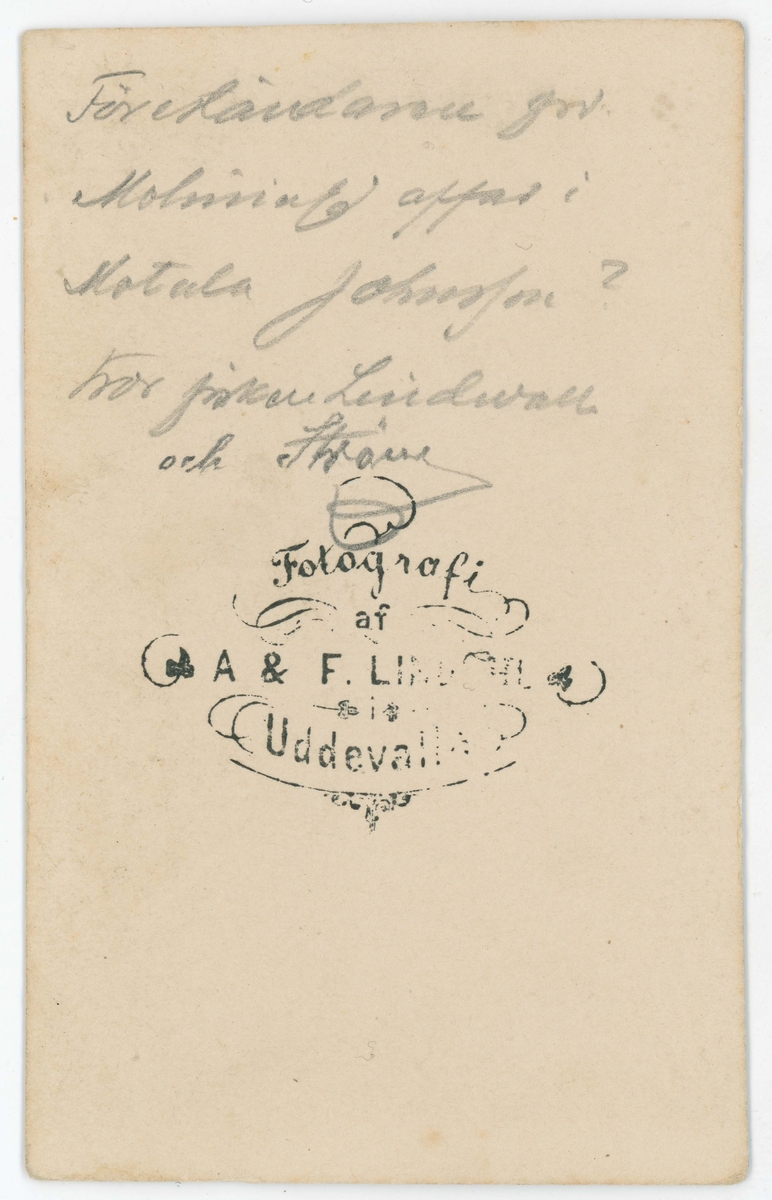 Föreståndaren för
affär i
Motala Johnsson?
tror fröken Lindwall
och Ström
Fotografi
af
A & F. LINDOHL
i
Uddevalla